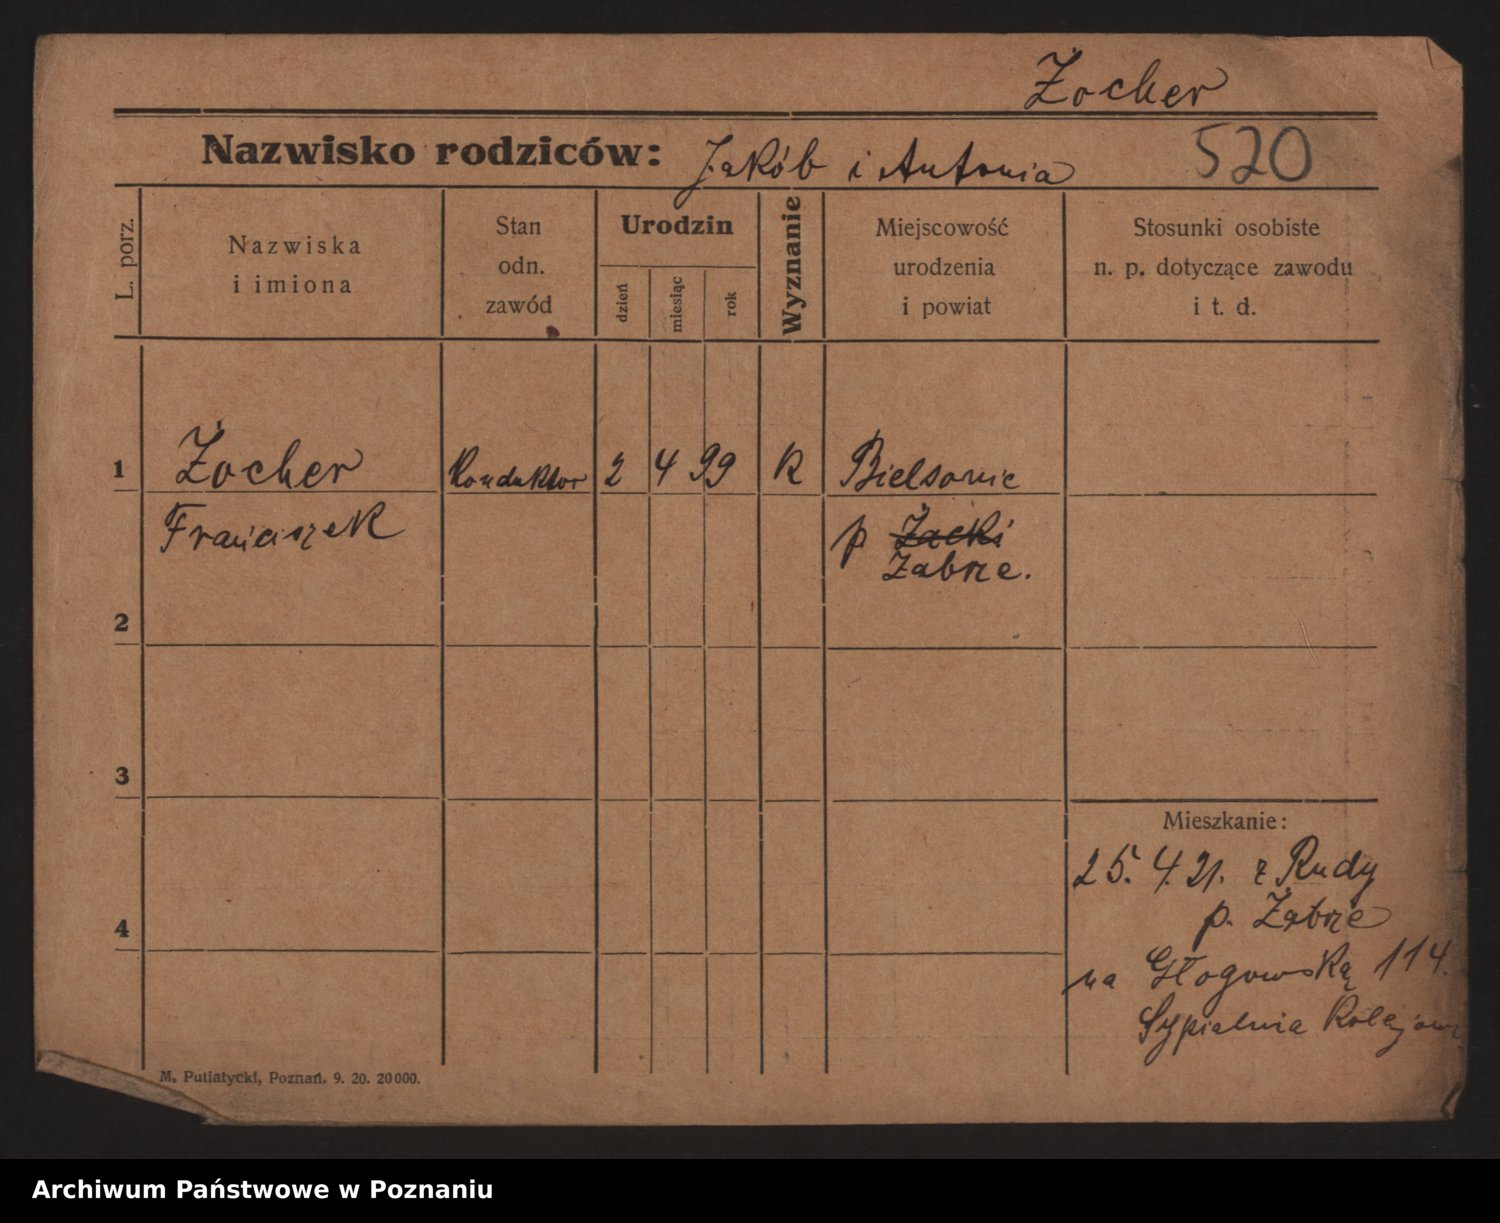 Żocher
Nazwisko rodziców: Jakób i Antonia 520
L. porz.
Nazwiska
i imiona
Stan
odn.
zawód
Urodzin
dzień
miesiąc
rok
Wyznanie
Miejscowość
urodzenia
i powiat
Stosunki osobiste
n. p. dotyczące zawodu
i t. d.
1 Żocher Konduktor 2 4 99 K Bielsowic
Franciszek p Żacki
Zabrze.
2
3
Mieszkanie:
25. 4. 21. z Rudy
p. Zabrze
4
na Głogowską 114.
Sypialnia Kolejowa
M. Putiatycki, Poznań. 9. 20. 20000.
Archiwum Państwowe w Poznaniu